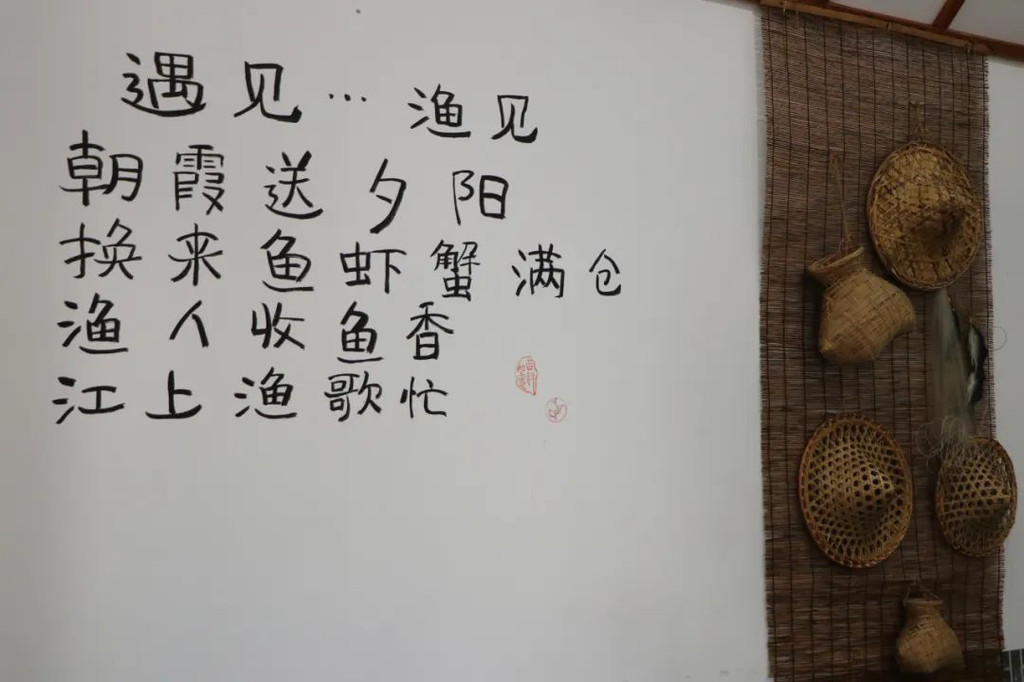 遇见…渔见
朝霞送夕阳
换来鱼虾蟹满仓
渔人收鱼香
江上渔歌忙